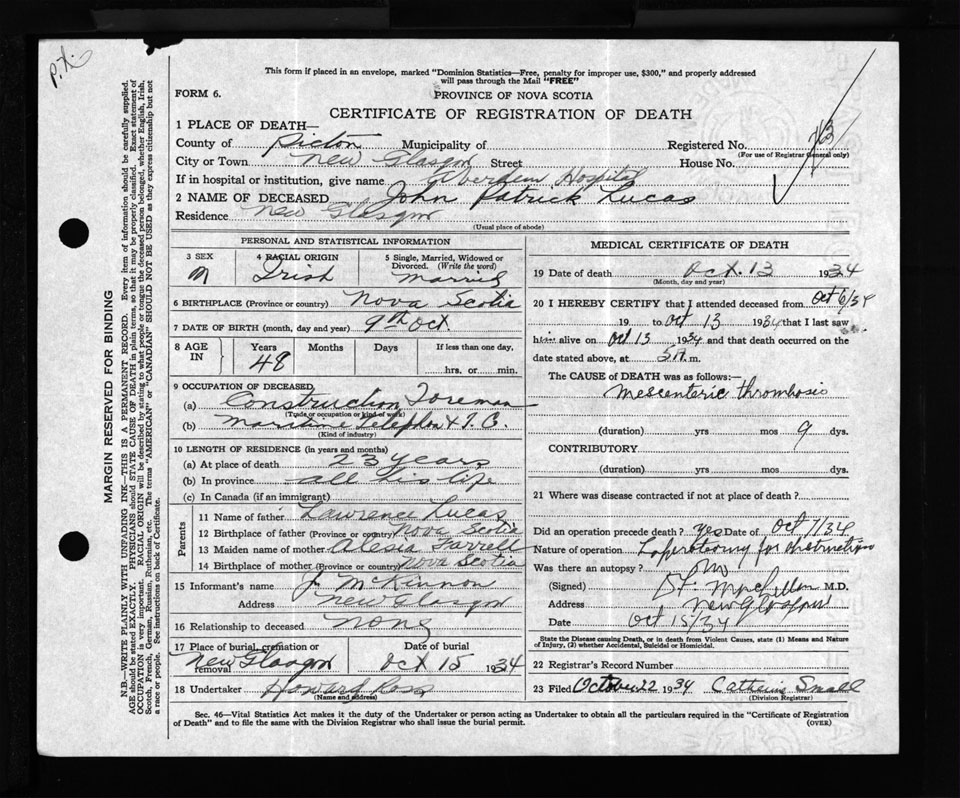 P.X.
This form if placed in an envelope, marked "Dominion Statistics—Free, penalty for improper use, $300," and properly addressed
will pass through the Mail "FREE"
FORM 6.
PROVINCE OF NOVA SCOTIA
CERTIFICATE OF REGISTRATION OF DEATH
1 PLACE OF DEATH—
County of Pictou Municipality of Registered No. 763
(For use of Registrar General only)
City or Town New Glasgow Street House No.
If in hospital or institution, give name Aberdeen Hospital
2 NAME OF DECEASED John Patrick Lucas
Residence New Glasgow
(Usual place of abode)
PERSONAL AND STATISTICAL INFORMATION
3 SEX 4 RACIAL ORIGIN 5 Single, Married, Widowed or
Divorced. (Write the word)
M Irish Married
6 BIRTHPLACE (Province or country) Nova Scotia
7 DATE OF BIRTH (month, day and year) 9th Oct
8 AGE IN Years Months Days If less than one day,
48 hrs. or min.
9 OCCUPATION OF DECEASED
(a) Construction Foreman
(Trade or occupation or kind of work)
(b) Maritime Telephon & T. C.
(Kind of industry)
10 LENGTH OF RESIDENCE (in years and months)
(a) At place of death 23 years
(b) In province all his life
(c) In Canada (if an immigrant)
Parents
11 Name of father Lawrence Lucas
12 Birthplace of father (Province or country) Nova Scotia
13 Maiden name of mother Alesia Farrell
14 Birthplace of mother (Province or country) Nova Scotia
15 Informant's name J. McKinnon
Address New Glasgow
16 Relationship to deceased None
17 Place of burial, cremation or removal New Glasgow Date of burial Oct 15 1934
18 Undertaker Howard Ross
(Name and address)
MEDICAL CERTIFICATE OF DEATH
19 Date of death Oct. 13 1934
(Month, day and year)
20 I HEREBY CERTIFY that I attended deceased from Oct 6/34
19 to Oct 13 1934 that I last saw
him alive on Oct 13 1934 and that death occurred on the
date stated above, at m.
The CAUSE of DEATH was as follows:—
Mesenteric thrombosis
(duration) yrs mos 9 dys.
CONTRIBUTORY
(duration) yrs mos dys.
21 Where was disease contracted if not at place of death?
Did an operation precede death? Yes Date of Oct 7/34
Nature of operation Laporotomy for obstruction
Was there an autopsy? No
(Signed) M.D.
Address New Glasgow
Date Oct 15/34
State the Disease causing Death, or in death from Violent Causes, state (1) Means and Nature
of Injury, (2) whether Accidental, Suicidal or Homicidal.
22 Registrar's Record Number
23 Filed October 22 1934 Catherine Small
(Division Registrar)
Sec. 46—Vital Statistics Act makes it the duty of the Undertaker or person acting as Undertaker to obtain all the particulars required in the "Certificate of Registration
of Death" and to file the same with the Division Registrar who shall issue the burial permit. (OVER)
MARGIN RESERVED FOR BINDING
N.B.—WRITE PLAINLY WITH UNFADING INK—THIS IS A PERMANENT RECORD. Every item of information should be carefully supplied.
AGE should be stated EXACTLY. PHYSICIANS should STATE CAUSE OF DEATH in plain terms, so that it may be properly classified. Exact statement of
OCCUPATION is very important. RACIAL ORIGIN will be described by stating to what people or tongue the deceased person belonged, whether English, Irish,
Scotch, French, German, Russian, Ruthenian, etc. The terms "AMERICAN" or "CANADIAN" SHOULD NOT BE USED as they express citizenship but not
a race or people. See instructions on back of Certificate.